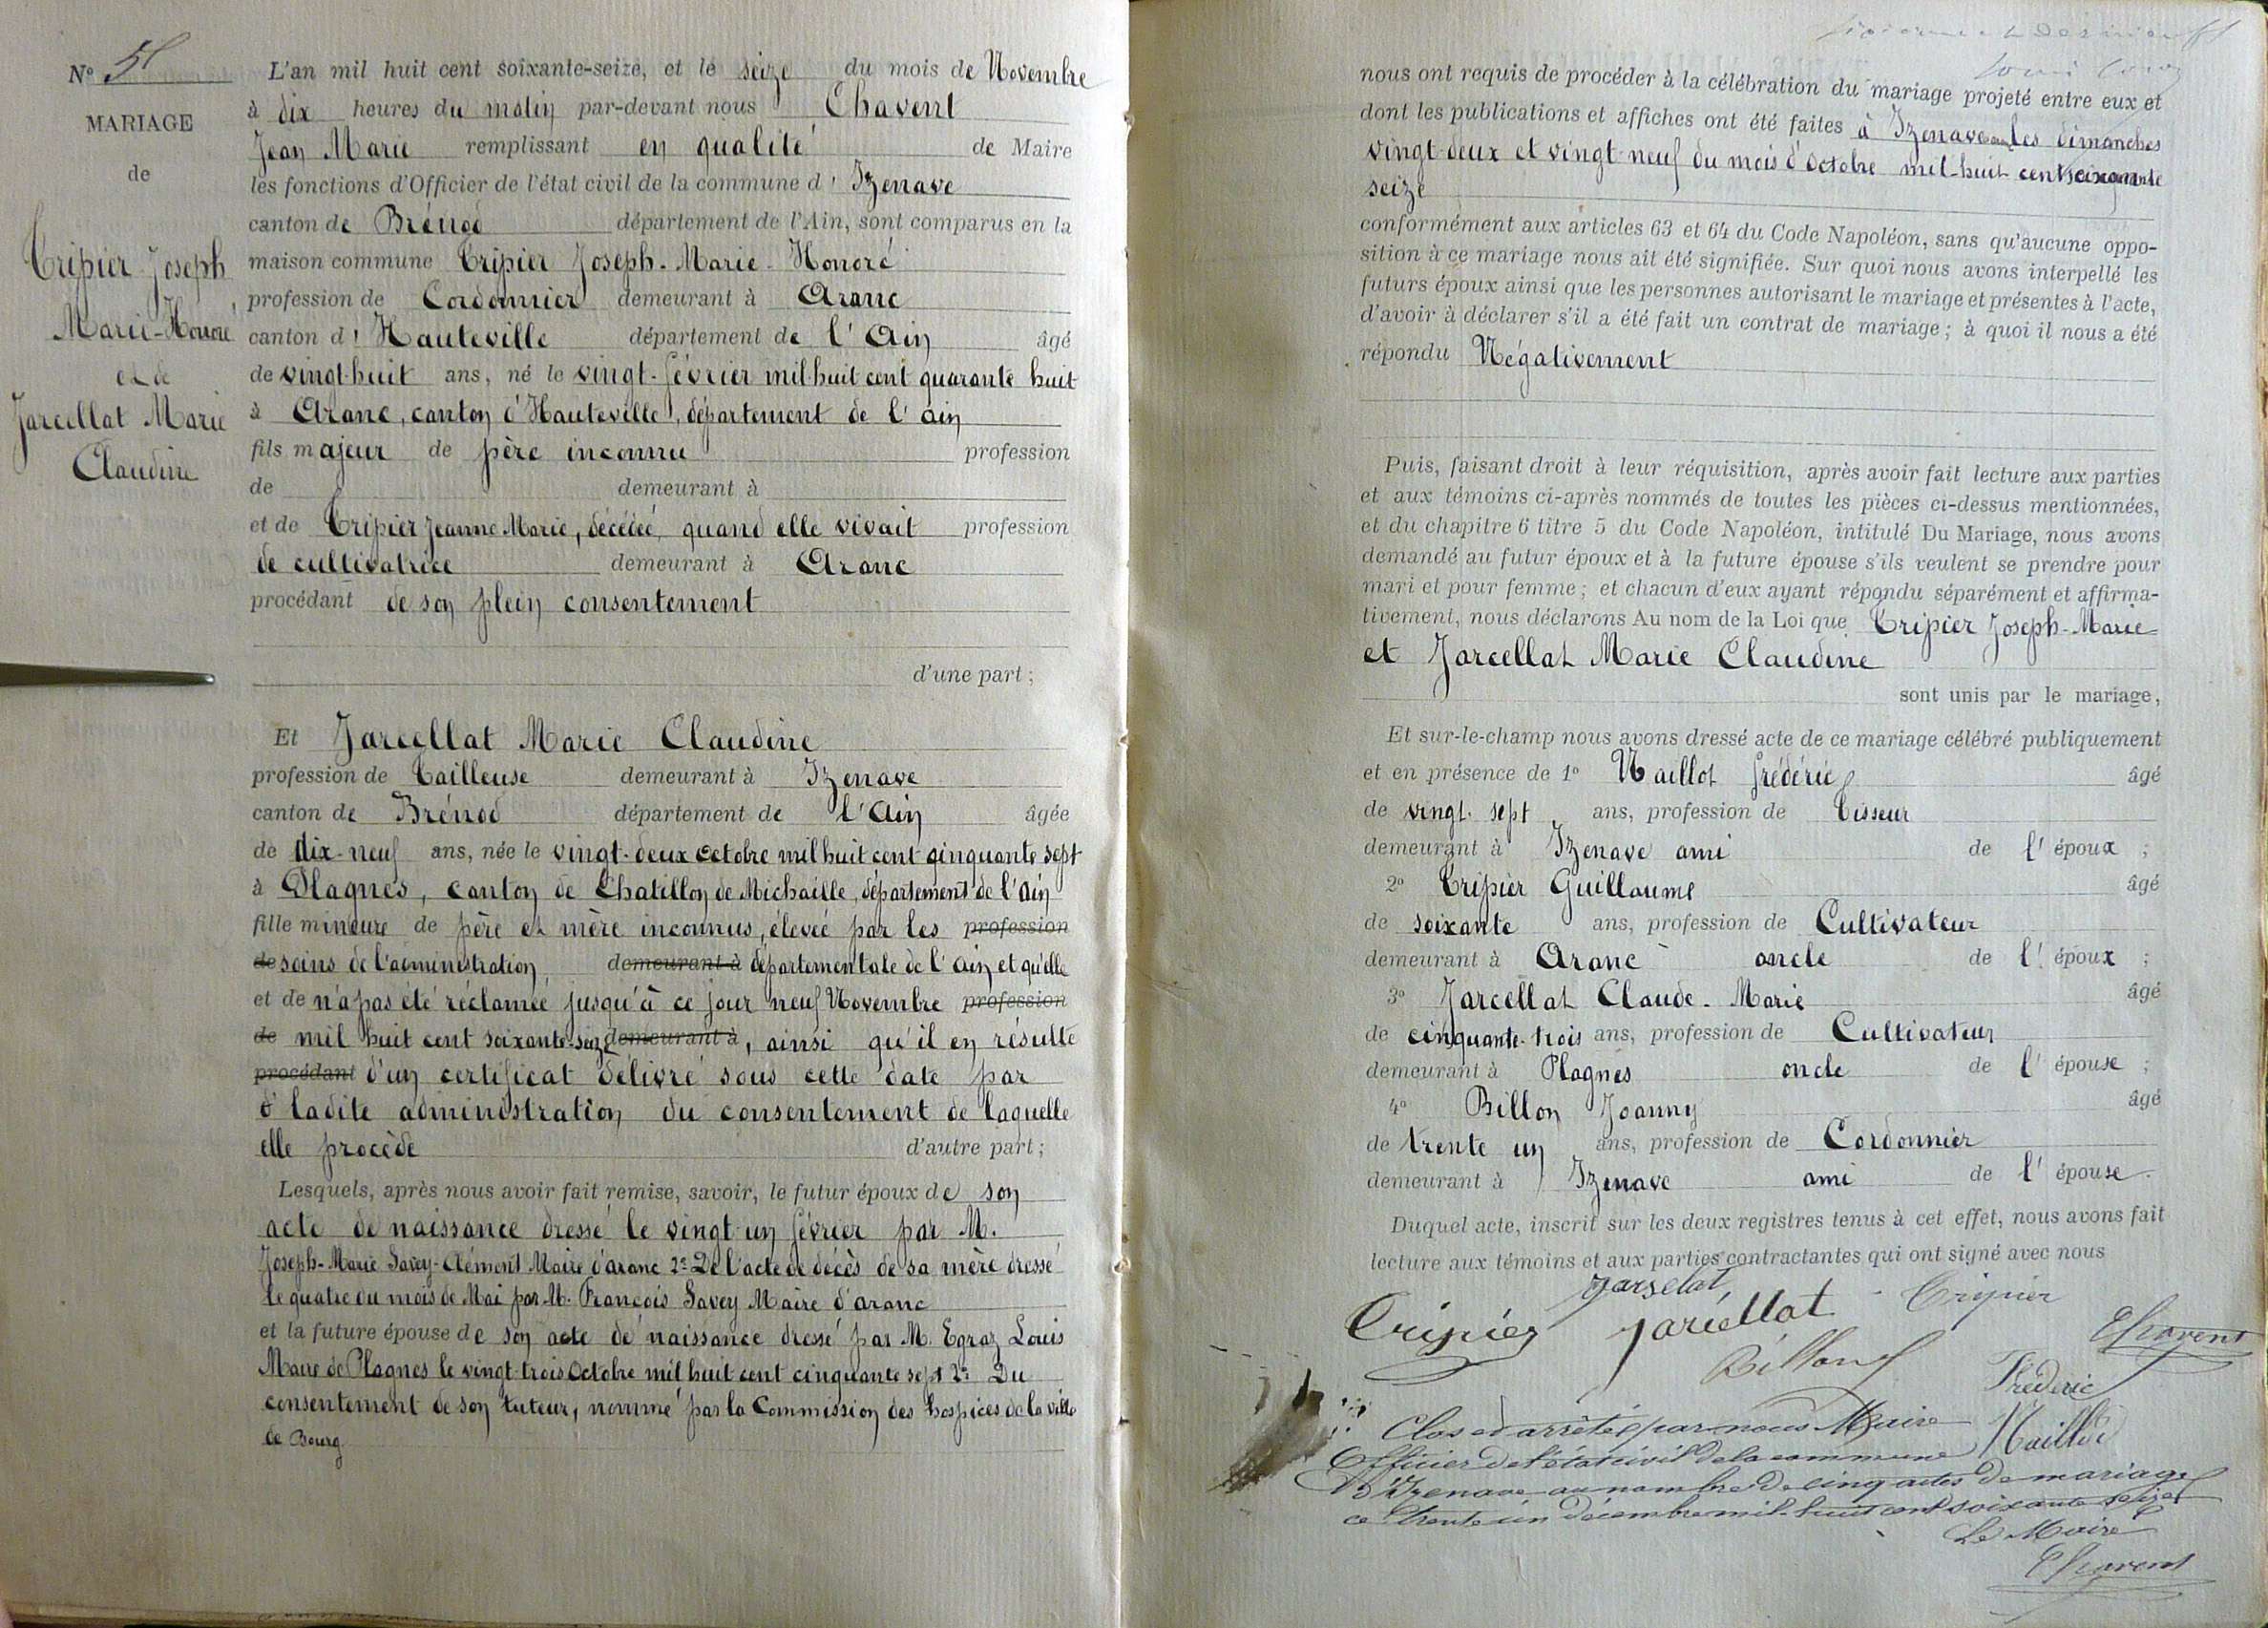 N° 5
MARIAGE
de
Tripier Joseph
Marie-Honoré
et de
Jarcellat Marie
Claudine
L'an mil huit cent soixante-seize, et le seize du mois de Novembre
à dix heures du matin par-devant nous Chavent
Jean Marie remplissant en qualité de Maire
les fonctions d'Officier de l'état civil de la commune d'Izenave
canton de Brénod département de l'Ain, sont comparus en la
maison commune Tripier Joseph-Marie-Honoré
profession de Cordonnier demeurant à Aranc
canton d'Hauteville département de l'Ain âgé
de vingt-huit ans, né le vingt-février mil huit cent quarante huit
à Aranc, canton d'Hauteville, département de l'ain
fils majeur de père inconnu profession
de demeurant à
et de Tripier Jeanne Marie, décédée, quand elle vivait profession
de cultivatrice demeurant à Aranc
procédant de son plein consentement
d'une part;
Et Jarcellat Marie Claudine
profession de Tailleuse demeurant à Izenave
canton de Brénod département de l'Ain âgée
de dix-neuf ans, née le vingt-deux octobre mil huit cent cinquante sept
à Plagnes, canton de Chatillon de Michaille, département de l'ain
fille mineure de père et mère inconnus, élevée par les profession
de soins de l'administration, demeurant à départementale de l'ain, et qu'elle
et de n'a pas été réclamée jusqu'à ce jour neuf Novembre profession
de mil huit cent soixante-seize demeurant à, ainsi qu'il en résulte
procédant d'un certificat délivré sous cette date par
ladite administration, du consentement de laquelle
elle procède d'autre part;
Lesquels, après nous avoir fait remise, savoir, le futur époux de son
acte de naissance dressé le vingt-un février par M.
Joseph-Marie Savey-Clément Maire d'aranc 2° De l'acte de décès de sa mère dressé
le quatre du mois de Mai par M. François Savey Maire d'aranc
et la future épouse de son acte de naissance dressé par M. Egraz Louis
Maire de Plagnes le vingt-trois Octobre mil huit cent cinquante sept 2° Du
consentement de son tuteur, nommé par la Commission des hospices de la ville
de Bourg
nous ont requis de procéder à la célébration du mariage projeté entre eux et
dont les publications et affiches ont été faites à Izenave les dimanches
vingt-deux et vingt-neuf du mois d'octobre mil-huit cent soixante
seize
conformément aux articles 63 et 64 du Code Napoléon, sans qu'aucune oppo-
sition à ce mariage nous ait été signifiée. Sur quoi nous avons interpellé les
futurs époux ainsi que les personnes autorisant le mariage et présentes à l'acte,
d'avoir à déclarer s'il a été fait un contrat de mariage; à quoi il nous a été
répondu Négativement
Puis, faisant droit à leur réquisition, après avoir fait lecture aux parties
et aux témoins ci-après nommés de toutes les pièces ci-dessus mentionnées,
et du chapitre 6 titre 5 du Code Napoléon, intitulé Du Mariage, nous avons
demandé au futur époux et à la future épouse s'ils veulent se prendre pour
mari et pour femme; et chacun d'eux ayant répondu séparément et affirma-
tivement, nous déclarons Au nom de la Loi que Tripier Joseph-Marie
et Jarcellat Marie Claudine
sont unis par le mariage,
Et sur-le-champ nous avons dressé acte de ce mariage célébré publiquement
et en présence de 1° Maillot frédéric âgé
de vingt-sept ans, profession de Tisseur
demeurant à Izenave ami de l'époux;
2° Tripier Guillaume âgé
de soixante ans, profession de Cultivateur
demeurant à Aranc oncle de l'époux;
3° Jarcellat Claude-Marie âgé
de cinquante-trois ans, profession de Cultivateur
demeurant à Plagnes oncle de l'épouse;
4° Billon Joanny âgé
de trente un ans, profession de Cordonnier
demeurant à Izenave ami de l'épouse.
Duquel acte, inscrit sur les deux registres tenus à cet effet, nous avons fait
lecture aux témoins et aux parties contractantes qui ont signé avec nous
jarselat
Tripier jarcellat Tripier
Chavent
Billon
Fréderic
Maillot
Clos et arrêté par nous Maire
Officier de l'état civil de la commune
d'Izenave au nombre de cinq actes de mariage
ce trente un décembre mil-huit cent soixante seize
Le Maire
Chavent